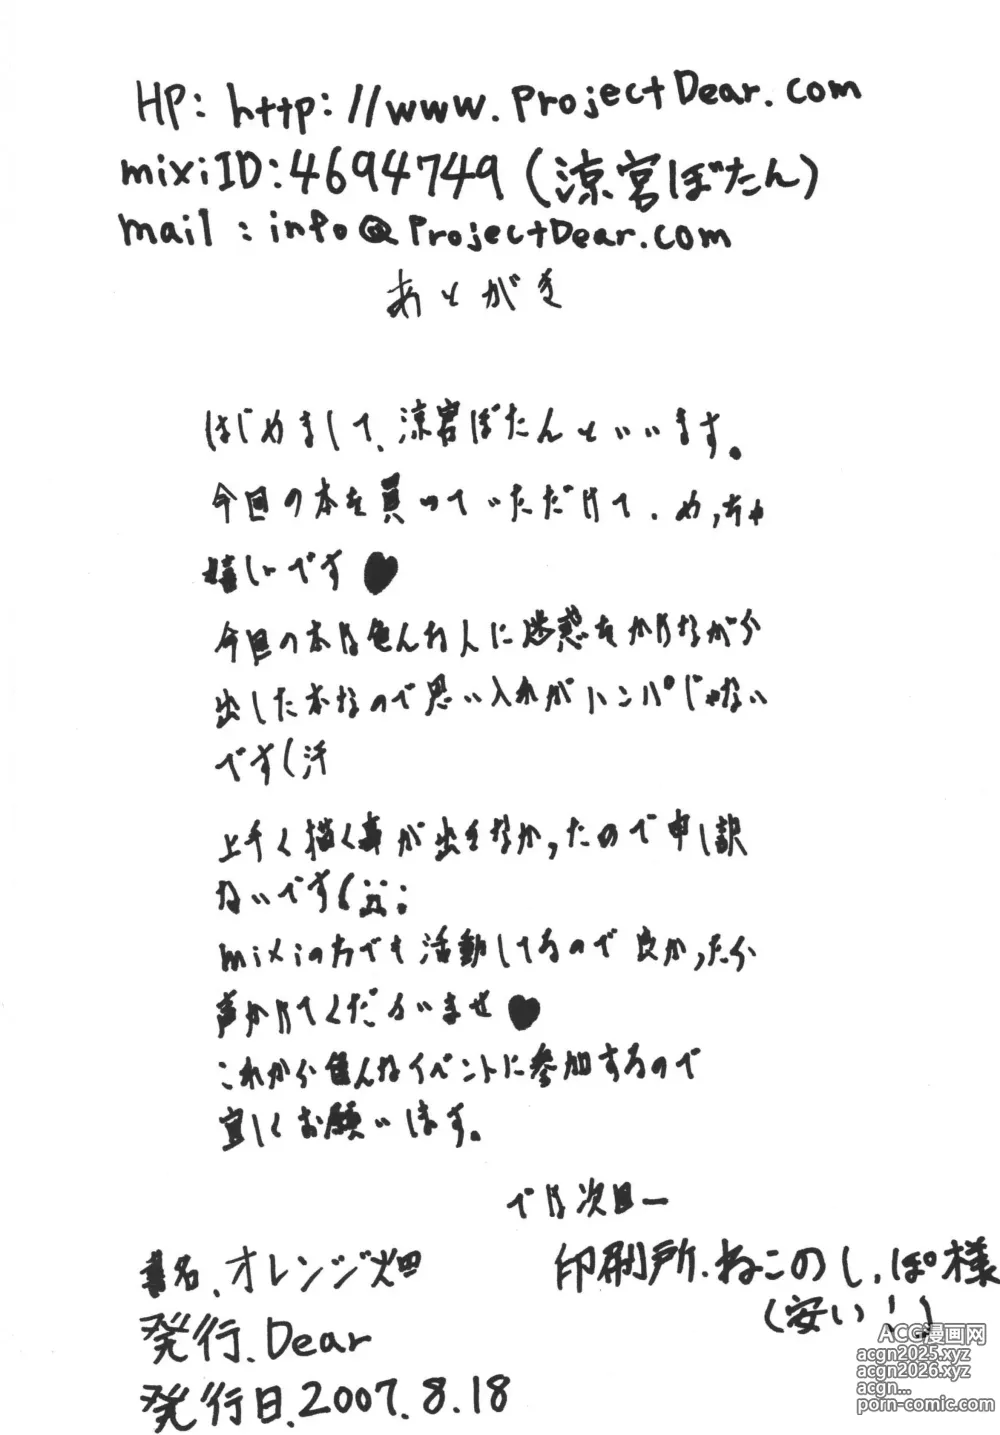 HP: http://www.ProjectDear.com
mixiID:4694749(涼宮ぼたん)
mail:info@ProjectDear.com
あとがき
はじめまして、涼宮ぼたんといいます。
今回の本を買っていただけて、めっちゃ
嬉しいです♥
今回の本は色んな人に迷惑をかけながら
出した本なので思い入れがハンパじゃない
です(汗
上手く描く事が出きなかったので申し訳
ないです(;
mixiの方でも活動してるので良かったら
声かけてくださいませ♥
これから色んなイベントに参加するので
宜しくお願いします。
では次回ー
書名.オレンジ畑
発行.Dear
発行日.2007.8.18
印刷所.ねこのしっぽ様
(安い!)
ACG漫画网
acgn2025.xyz
acgn2026.xyz
acgn...
porn-comic.com